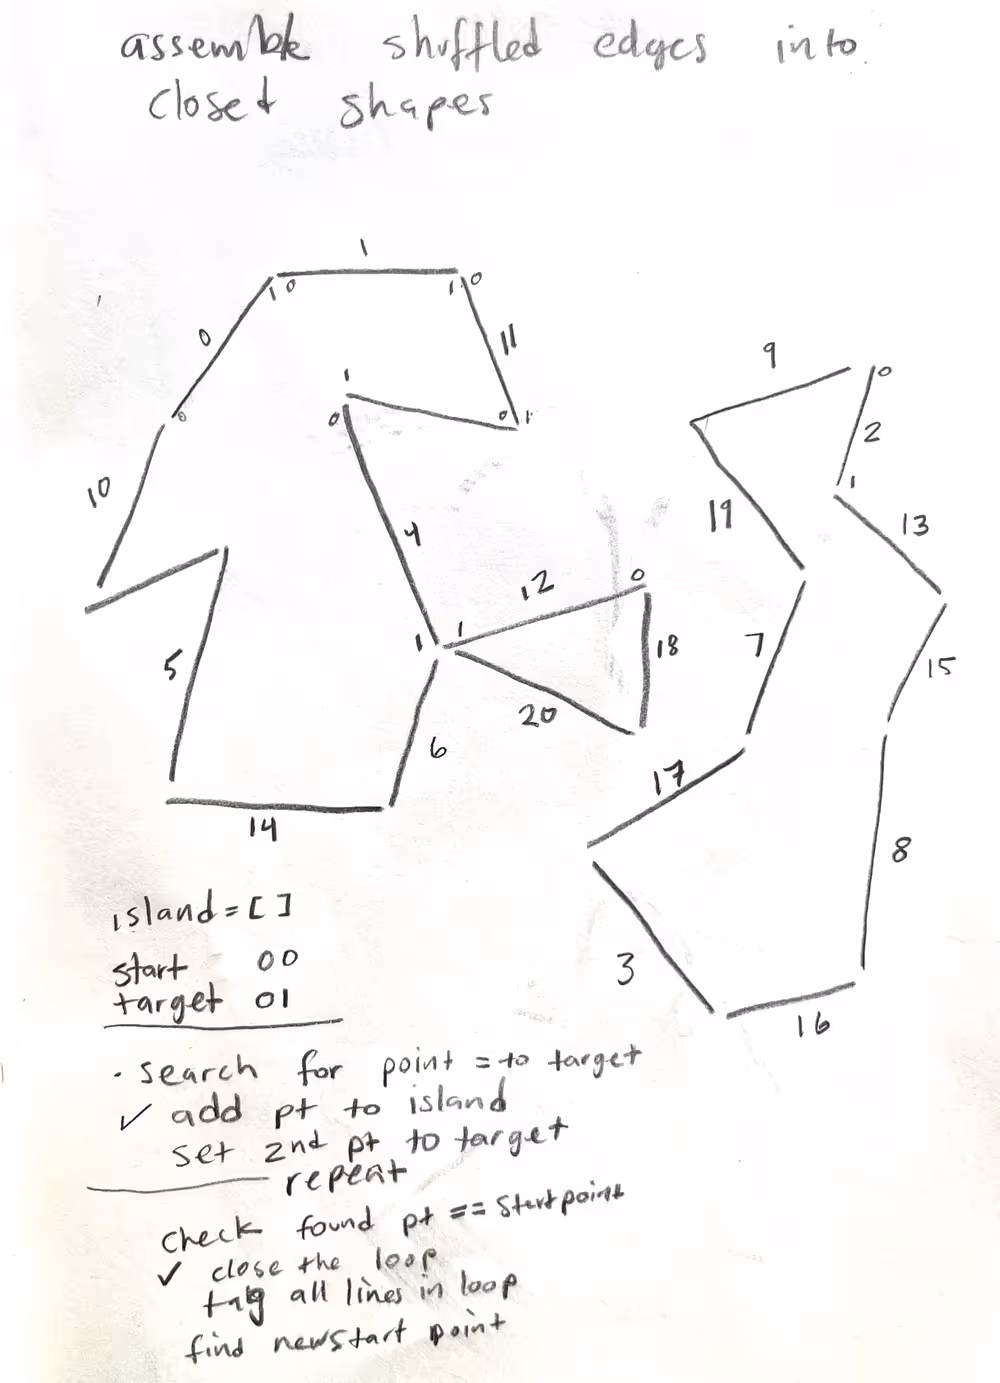 assemble shuffled edges into
closed shapes
1
0
1 0
1 0
0
11
1
0
0 1
10
4
5
12
0
1 1
18
20
6
14
9
0
2
1
19
13
7
15
17
8
3
16
island = [ ]
start 00
target 01
. search for point = to target
✓ add pt to island
set 2nd pt to target
repeat
check found pt == startpoint
✓ close the loop
tag all lines in loop
find new start point